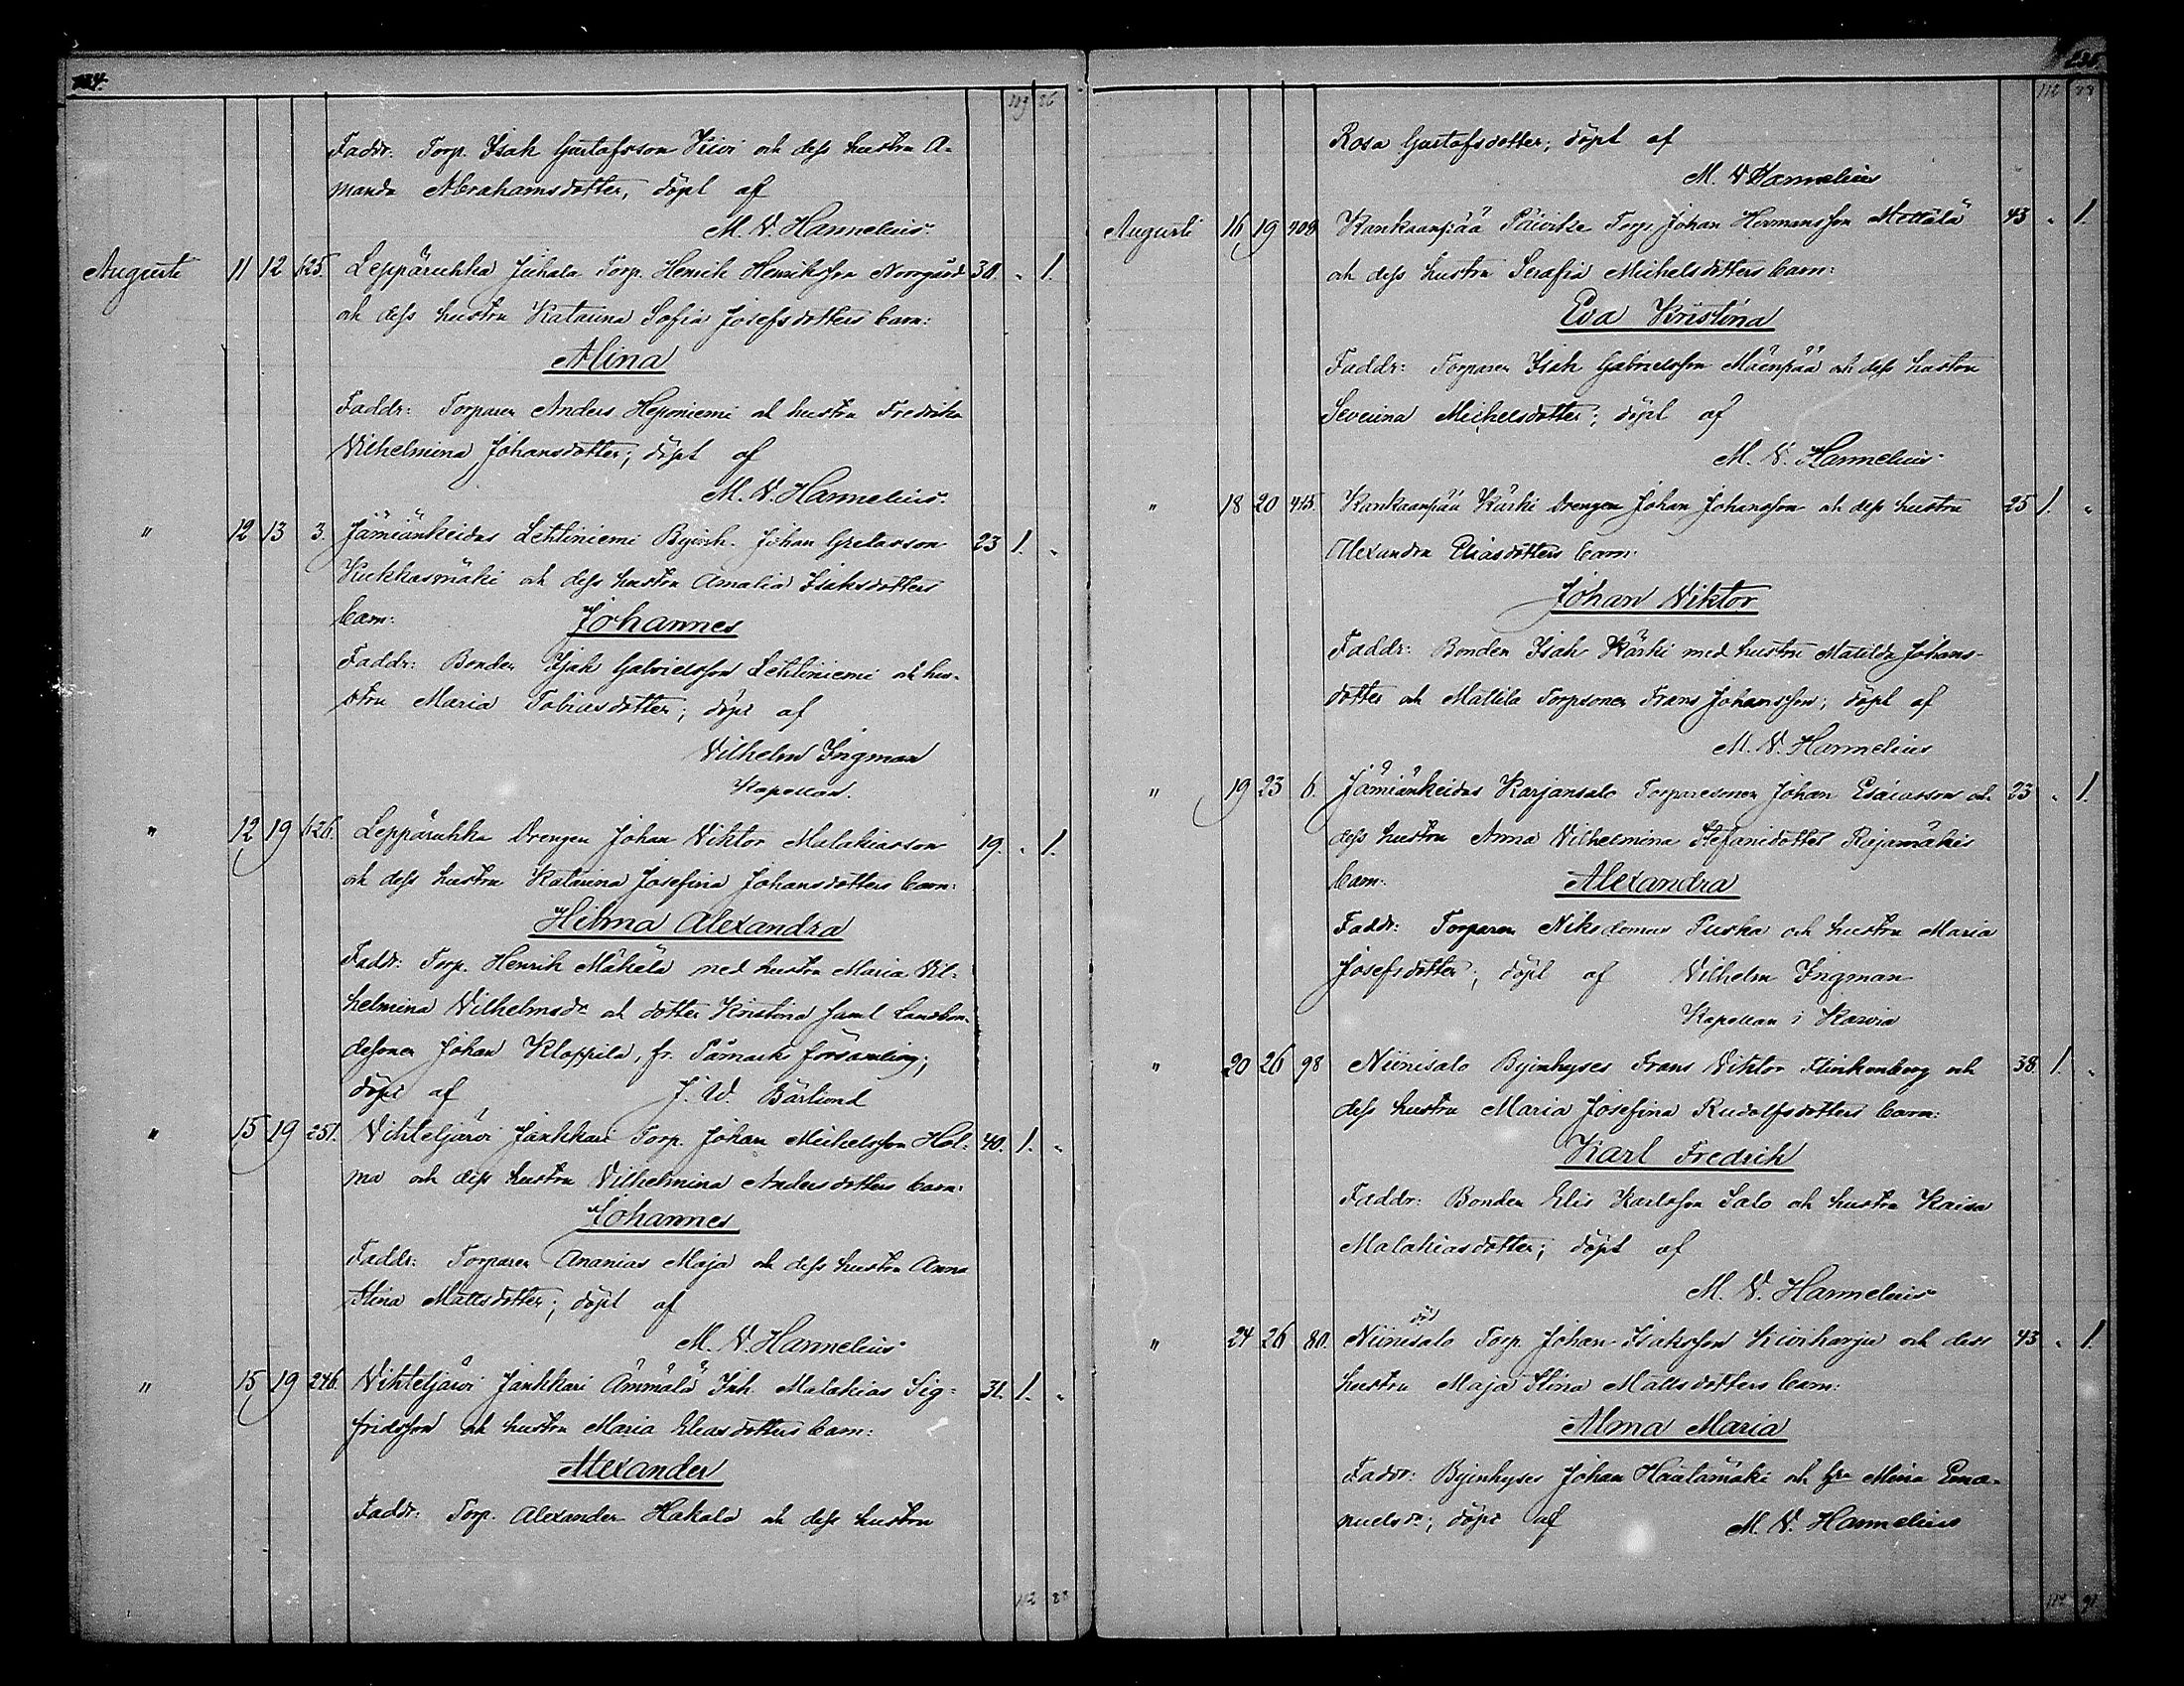 109 86
Faddr: Torp. Isak Gustafsson Kivi och dess hustru A-
manda Abrahamsdotter, döpt af
M. V. Hannelius.
Augusti 11 12 625. Leppäruhka Juhala Torp. Henrik Henriksson Norrgård 30. " 1.
och dess hustru Katarina Sofia Josefsdotters barn:
Alina
Faddr: Torparen Anders Heponiemi och hustru Fredrika
Vilhelmina Johansdotter; döpt af
M. V. Hannelius.
" 12 13 3. Jämiänkeidas Lehtiniemi Byinh. Johan Gretasson 23 1. "
Kukkasmäki och dess hustru Amalia Isaksdotters
barn: Johannes
Faddr: Bonden Isak Gabrielsson Lehtiniemi och hu-
stru Maria Tobiasdotter; döpt af
Vilhelm Ingman
Kapellan.
" 12 19 626. Leppäruhka Drengen Johan Viktor Malakiasson 19. " 1.
och dess hustru Katarina Josefina Johansdotters barn:
Hilma Alexandra
Faddr: Torp. Henrik Mäkelä med hustru Maria Vil-
helmina Vilhelmsdr och dotter Kristina samt Landbon-
desonen Johan Kloppila, fr. Påmark församling;
döpt af J. W. Bärlund
" 15 19 251. Vihteljärvi Jankkari Torp. Johan Michelsson Hol- 40. 1. "
ma och dess hustru Vilhelmina Andersdotters barn:
Johannes
Faddr: Torparen Ananias Maja och dess hustru Anna
Stina Mattsdotter; döpt af
M. V. Hannelius
" 15 19 246. Vihteljärvi Jankkari Ämmälä Inh. Malakias Sig- 31. 1. "
fridsson och hustru Maria Eliasdotters barn:
Alexander
Faddr: Torp. Alexander Hakala och dess hustru
112 88
112 88
Rosa Gustafsdotter; döpt af
M. V. Hannelius
Augusti 16 19 408 Kankaanpää Päivike Torp. Johan Hermansson Mettälä 43 " 1.
och dess hustru Serafia Michelsdotters barn:
Eva Kristina
Faddr: Torparen Isak Gabrielsson Mäenpää och dess hustru
Severina Michelsdotter; döpt af
M. V. Hannelius
" 18 20 415. Kankaanpää Kärki Drengen Johan Johansson och dess hustru 25 1. "
Alexandra Eliasdotters barn:
Johan Viktor
Faddr: Bonden Isak Kärki med hustru Matilda Johans-
dotter och Mattila Torpsonen Frans Johansson; döpt af
M. V. Hannelius
" 19 23 6. Jämiänkeidas Karjansalo Torparesonen Johan Esaiasson och 23 " 1.
dess hustru Anna Vilhelmina Stefanidotter Rajamäkis
barn: Alexandra
Faddr: Torparen Nikodemus Puska och hustru Maria
Josefsdotter; döpt af Vilhelm Ingman
Kapellan i Karvia
" 20 26 98 Niinisalo Byinhyses Frans Viktor Flinkenberg och 38. 1. "
dess hustru Maria Josefina Rudolfsdotters barn:
Karl Fredrik
Faddr: Bonden Elis Karlsson Salo och hustru Kaisa
Malakiasdotter; döpt af
M. V. Hannelius
död
" 24 26 80. Niinisalo Torp. Johan Isaksson Kiviharju och dess 43 " 1.
hustru Maja Stina Mattsdotters barn:
Alma Maria
Faddr: Byinhyses Johan Hautamäki och hru Mina Ema-
nuelsdr; döpt af M. V. Hannelius